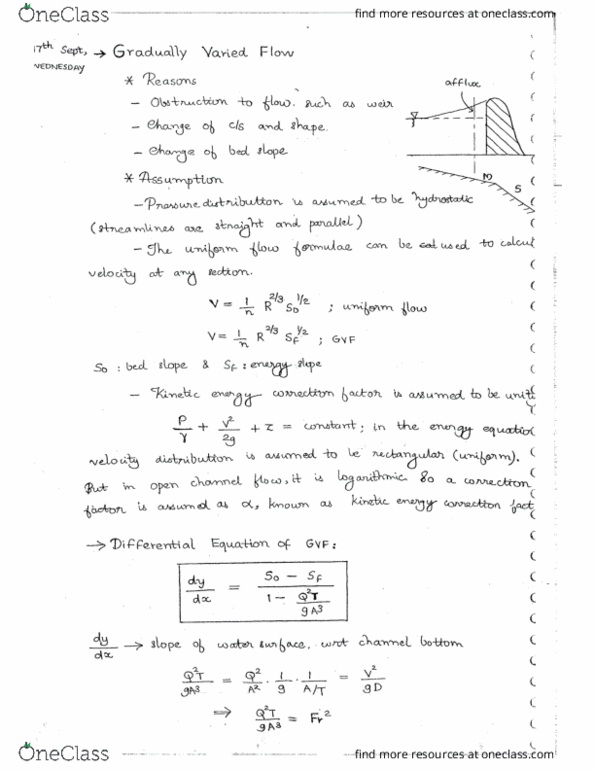 OneClass
find more resources at oneclass.com
17th Sept, → Gradually Varied Flow
WEDNESDAY
* Reasons
afflux
- Obstruction to flow. such as weir
- Change of c/s and shape.
- Change of bed slope
M
S
* Assumption
- Pressure distribution is assumed to be hydrostatic
(streamlines are straight and parallel)
- The uniform flow formulae can be used to calcul
velocity at any section.
V = 1/n R^2/3 So^1/2 ; uniform flow
V = 1/n R^2/3 Sf^1/2 ; GVF
So : bed slope & Sf : energy slope
- Kinetic energy correction factor is assumed to be unit
P/γ + V²/2g + z = constant; in the energy equation
velocity distribution is assumed to be rectangular (uniform).
But in open channel flow, it is logarithmic so a correction
factor is assumed as α, known as kinetic energy correction fact
→ Differential Equation of GVF:
dy/dx = (So - Sf) / (1 - Q²T/gA³)
dy/dx → slope of water surface, wrt channel bottom
Q²T/gA³ = Q²/A² · 1/g · 1/A/T = V²/gD
⇒ Q²T/gA³ = Fr²
OneClass
find more resources at oneclass.com